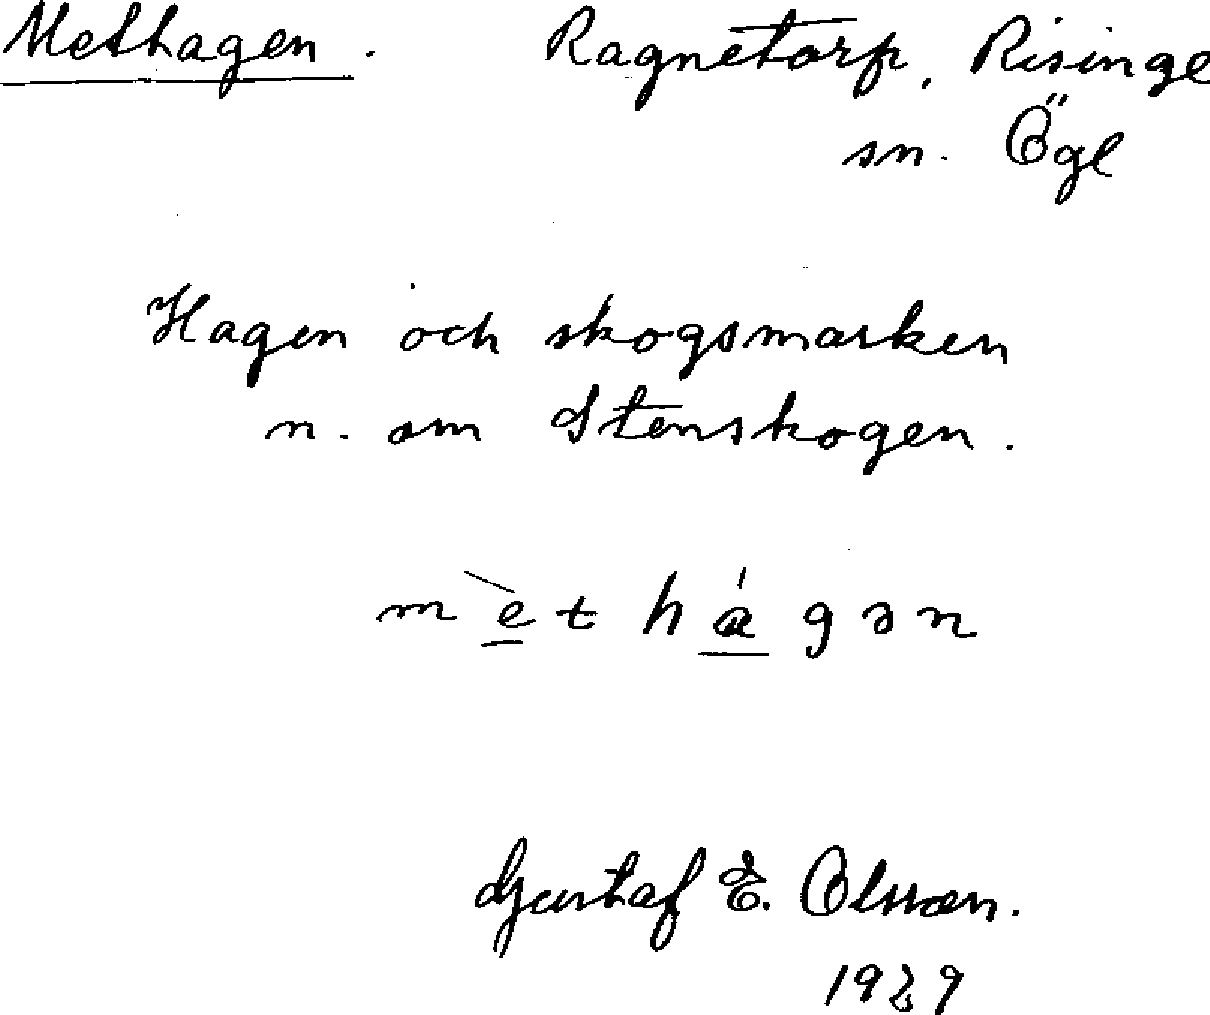 Methagen. Ragnetorp, Risinge
sn. Ögl
Hagen och skogsmarken
n. om Stenskogen.
m è t h á g ə n
Gustaf E. Olsson.
1929